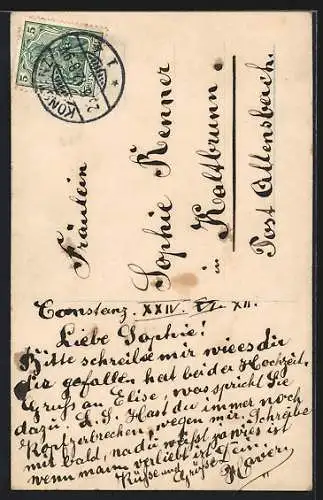 5 5
KONSTANZ
* 1 *
Fräulein
Sophie Renner
in Kaltbrunn
Post Allensbach.
Constanz. XXIV. VI. XII.
Liebe Sophie!
Bitte schreibe mir wie es dir
dir gefallen hat bei der Hochzeit,
Gruß an Elise, was spricht Sie
dazu. L. S. Hast du immer noch
Kopfzerbrechen, wegen mir. Schreibe
mir bald, na du weißt ja wies ist
wenn mann verliebt ist. Dein
Küsse und Grüße
Xaver